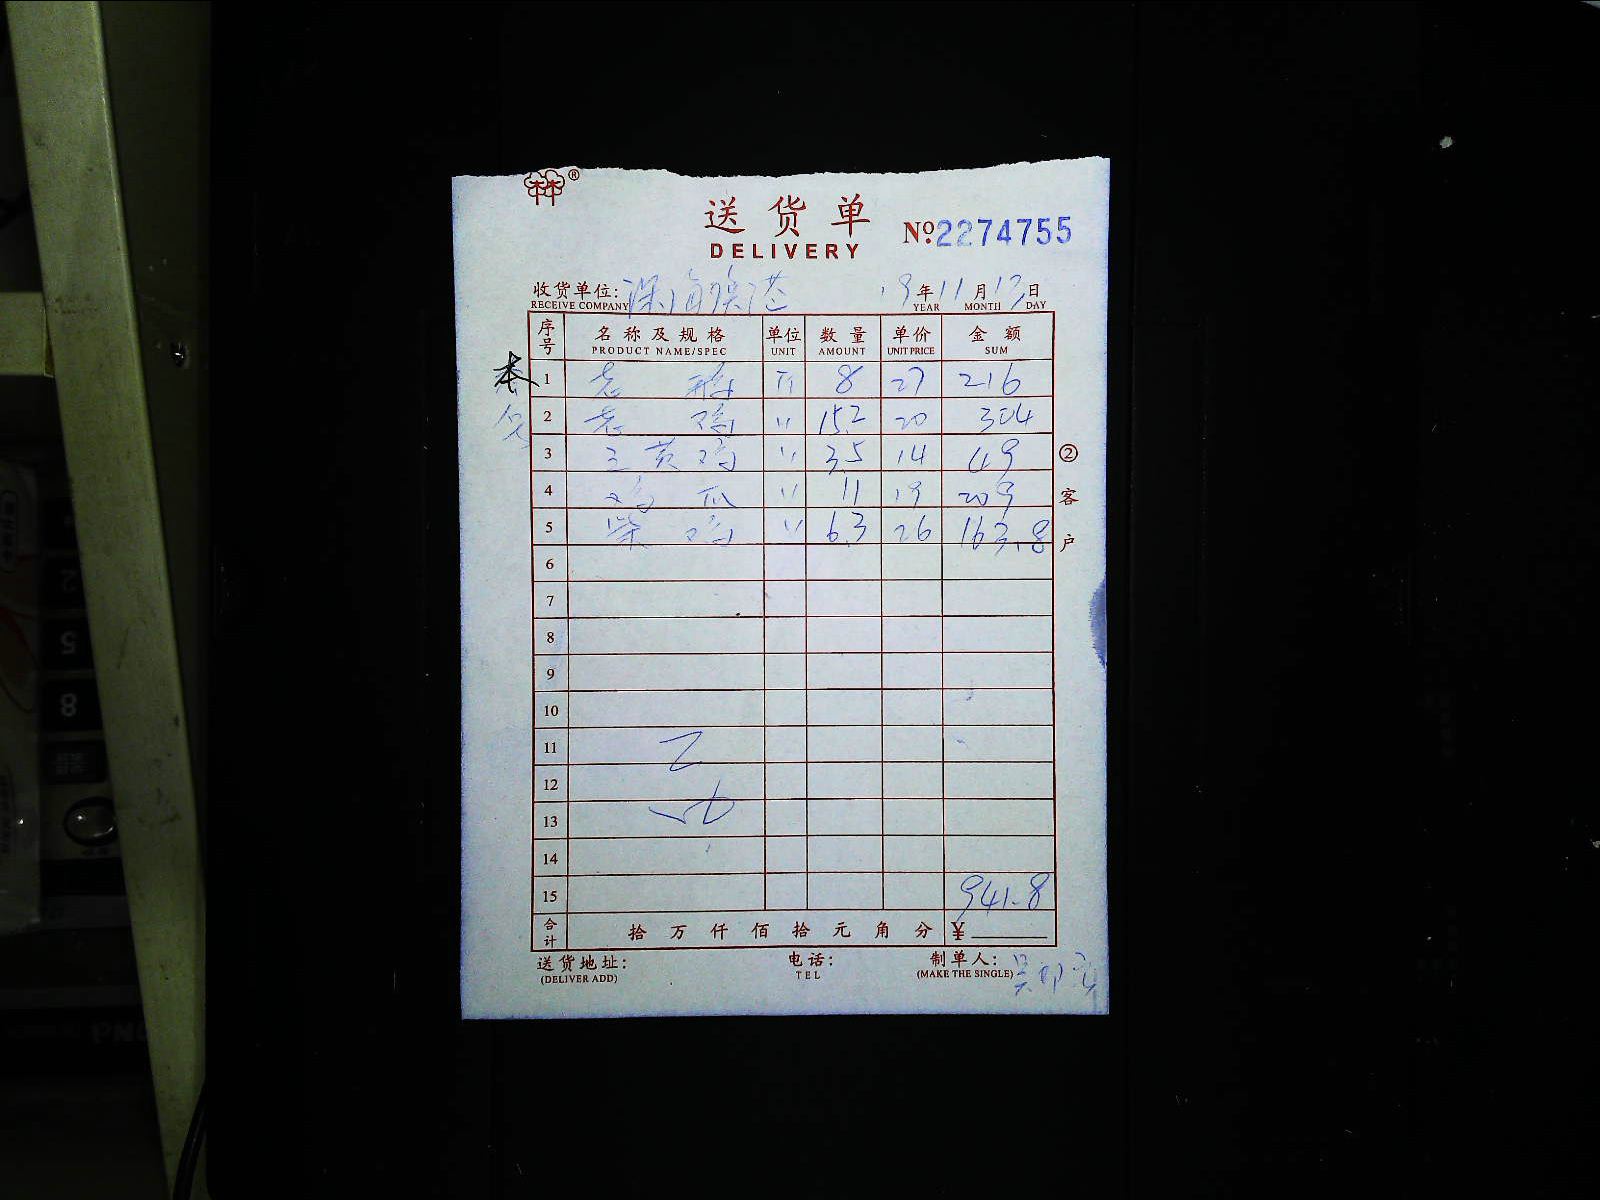 ®
送货单 №2274755
DELIVERY
收货单位: 19年11月13日
RECEIVE COMPANY YEAR MONTH DAY
序号 名称及规格 单位 数量 单价 金额
PRODUCT NAME/SPEC UNIT AMOUNT UNIT PRICE SUM
本
1 老 8 27 216
2 老 鸡 〃 15.2 20 304
3 三黄鸡 〃 3.5 14 49
4 鸡爪 〃 11 19 209
5 柴鸡 〃 6.3 26 163.8
②客户
6
7
8
9
10
11
12
13
14
15 941.8
合计 拾万仟佰拾元角分 ¥
送货地址: 电话: 制单人:
(DELIVER ADD) TEL (MAKE THE SINGLE)